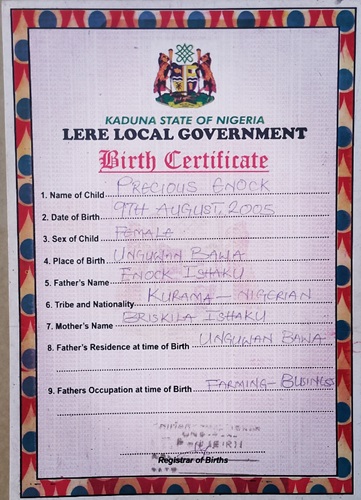 KADUNA STATE OF NIGERIA
LERE LOCAL GOVERNMENT
Birth Certificate
1. Name of Child PRECIOUS ENOCK
2. Date of Birth 9TH AUGUST, 2005
3. Sex of Child FEMALA
4. Place of Birth UNGUWAN BAWA
5. Father's Name ENOCK ISHAKU
6. Tribe and Nationality KURAMA - NIGERIAN
7. Mother's Name BRISKILA ISHAKU
8. Father's Residence at time of Birth UNGUWAN BAWA
9. Fathers Occupation at time of Birth FARMING - BUSINESS
Registrar of Births